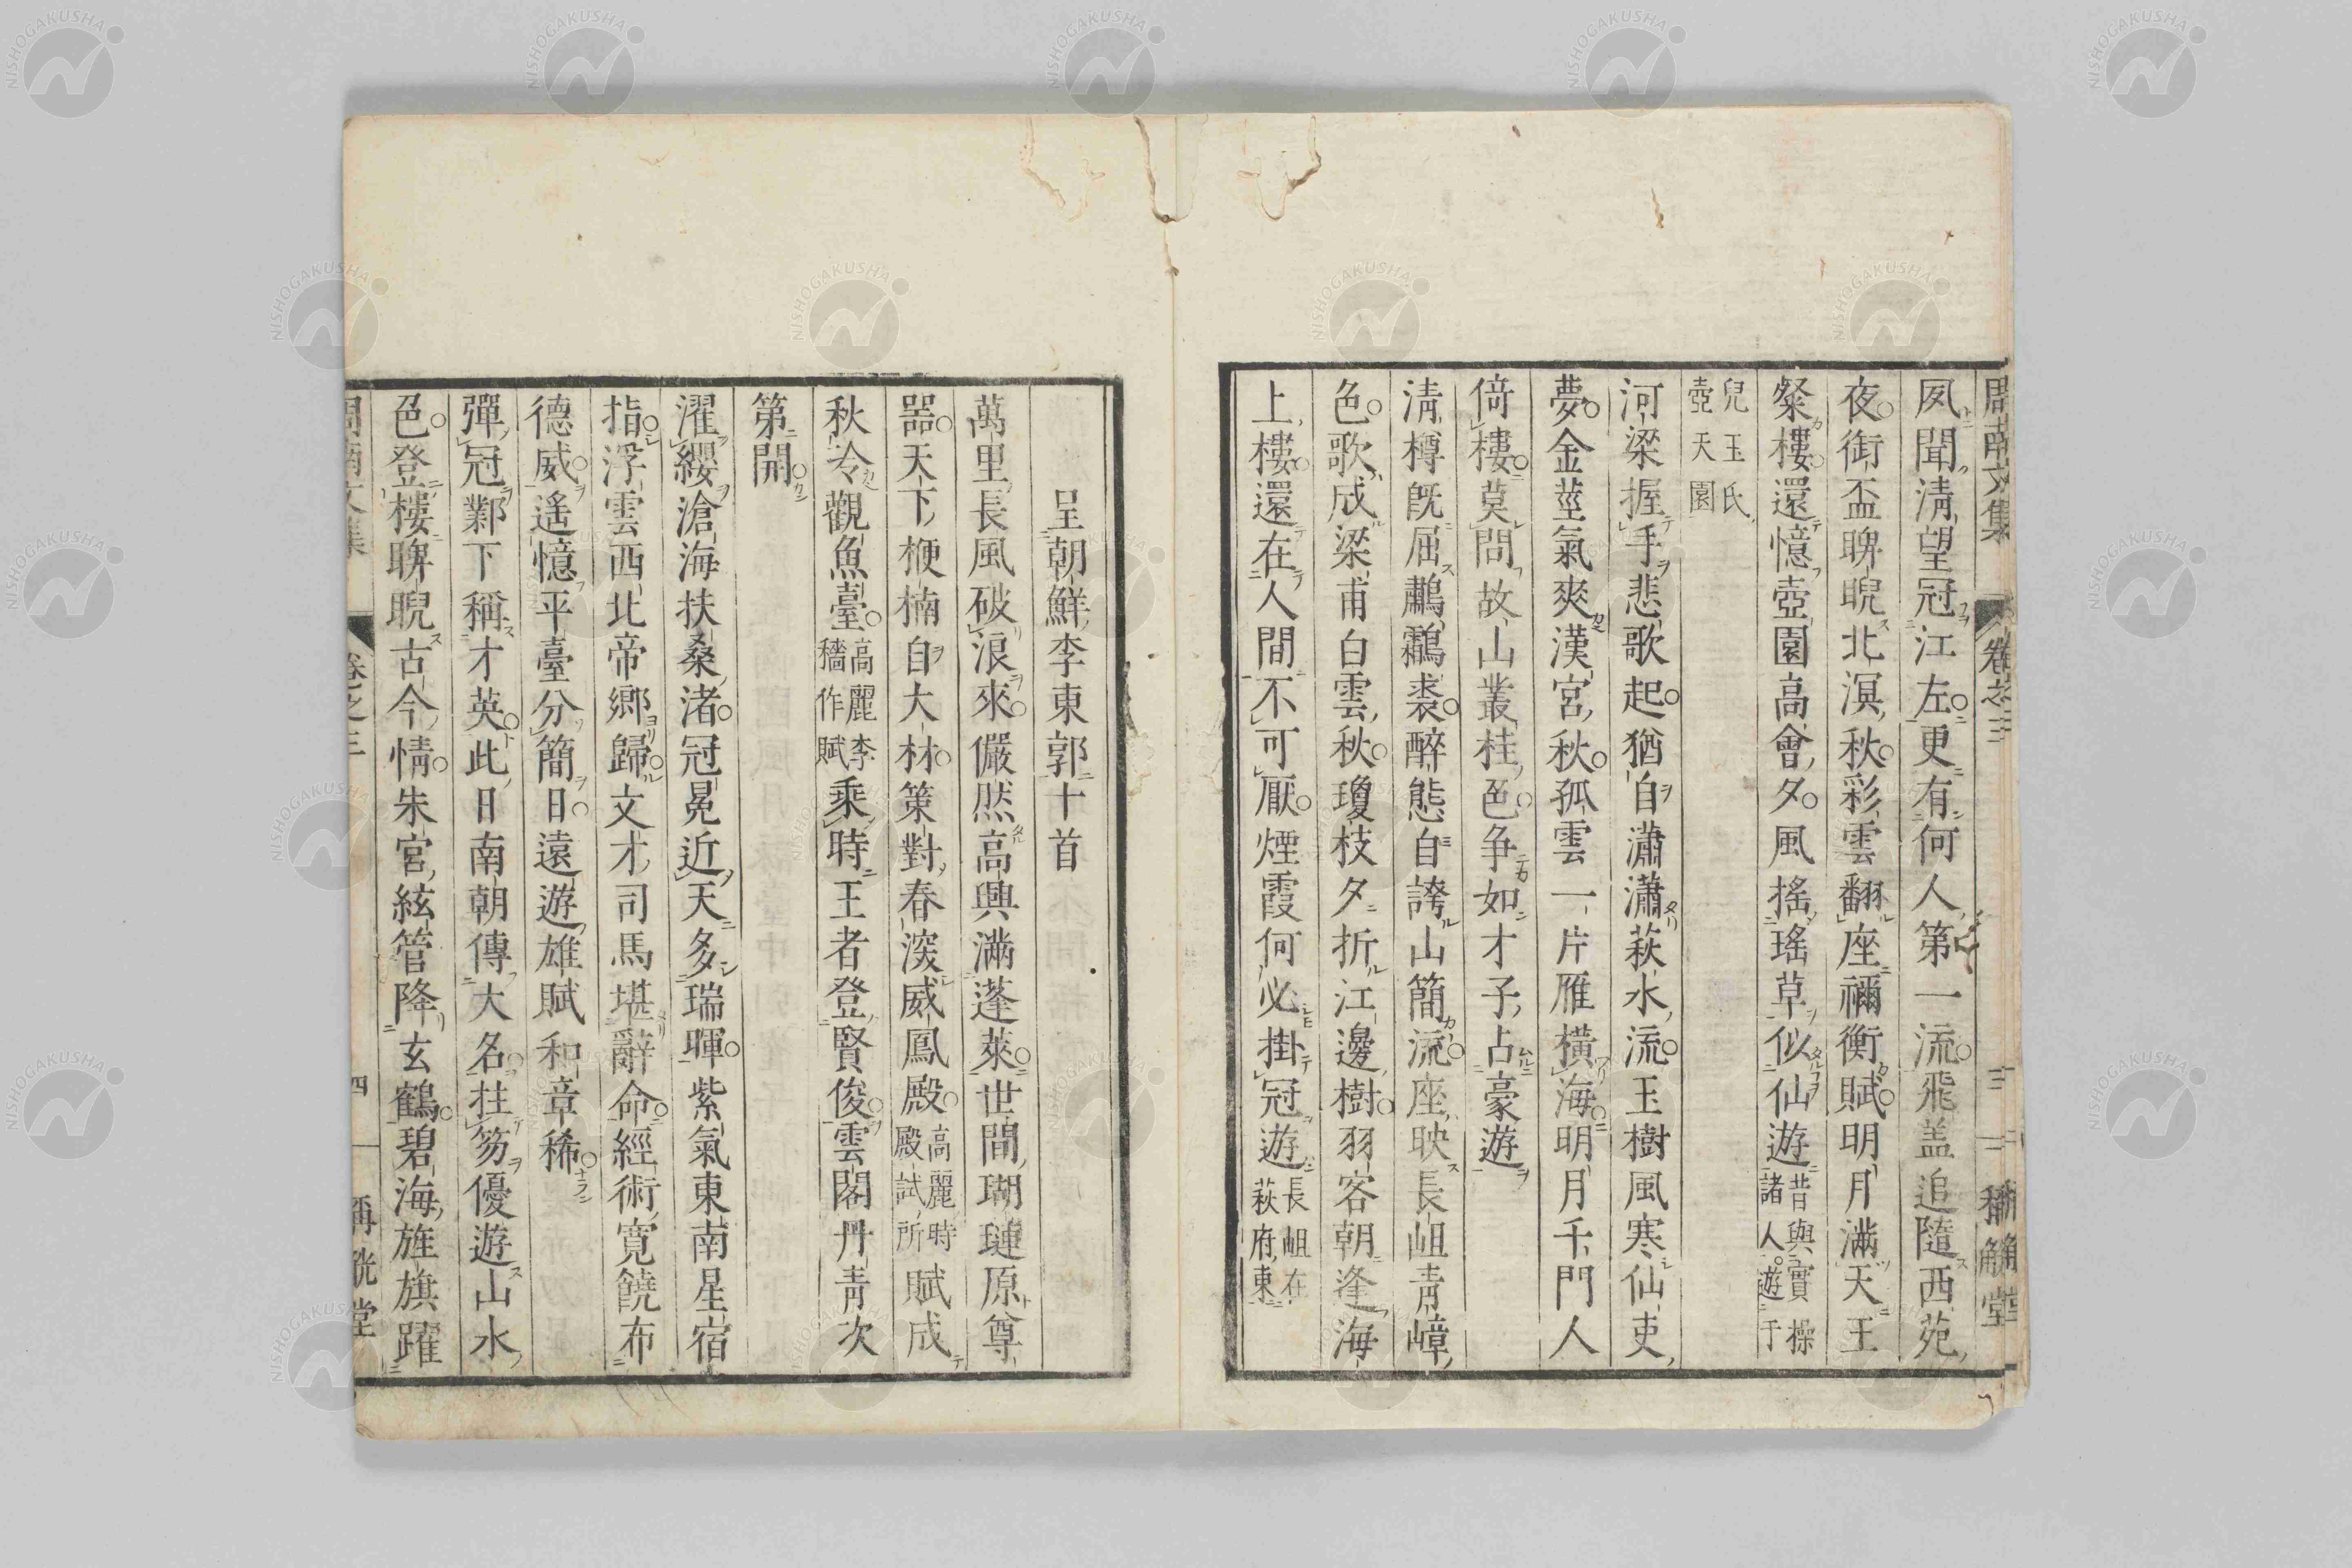 周南文集 卷之三 三 稱觴堂
夙聞清望冠江左更有何人第一流飛盖追隨西苑
夜銜盃睥睨北溟秋彩雲翻座禰衡賦明月滿天王
粲樓還憶壺園高會夕風搖瑤草似仙遊昔與實操諸人遊于
兒玉玉氏壺天園
河梁握手悲歌起猶自瀟瀟萩水流玉樹風寒仙吏
夢金莖氣爽漢宮秋孤雲一片雁橫海明月千門人
倚樓莫問故山叢桂色爭如才子占豪遊
清樽既屈鷫鸘裘醉態自誇山簡流座映長岨青嶂
色歌成梁甫白雲秋瓊枝夕折江邊樹羽客朝逢海
上樓還在人間不可厭煙霞何必掛冠遊長岨在萩府東
呈朝鮮李東郭十首
萬里長風破浪來儼然高興滿蓬萊世間瑚璉原尊
器天下楩楠自大材策對春深威鳳殿高麗時殿試所賦成
秋冷觀魚臺高麗李穡作賦乘時王者登賢俊雲閣丹青次
第開
濯纓滄海扶桑渚冠冕近天多瑞暉紫氣東南星宿
指浮雲西北帝鄉歸文才司馬堪辭命經術寬饒布
德威遙憶平臺分簡日遠遊雄賦和章稀
彈冠鄴下稱才英此日南朝傳大名拄笏優遊山水
色登樓睥睨古今情朱宮絃管降玄鶴碧海旌旗躍
周南文集 卷之三 四 稱觥堂
NISHOGAKUSHA